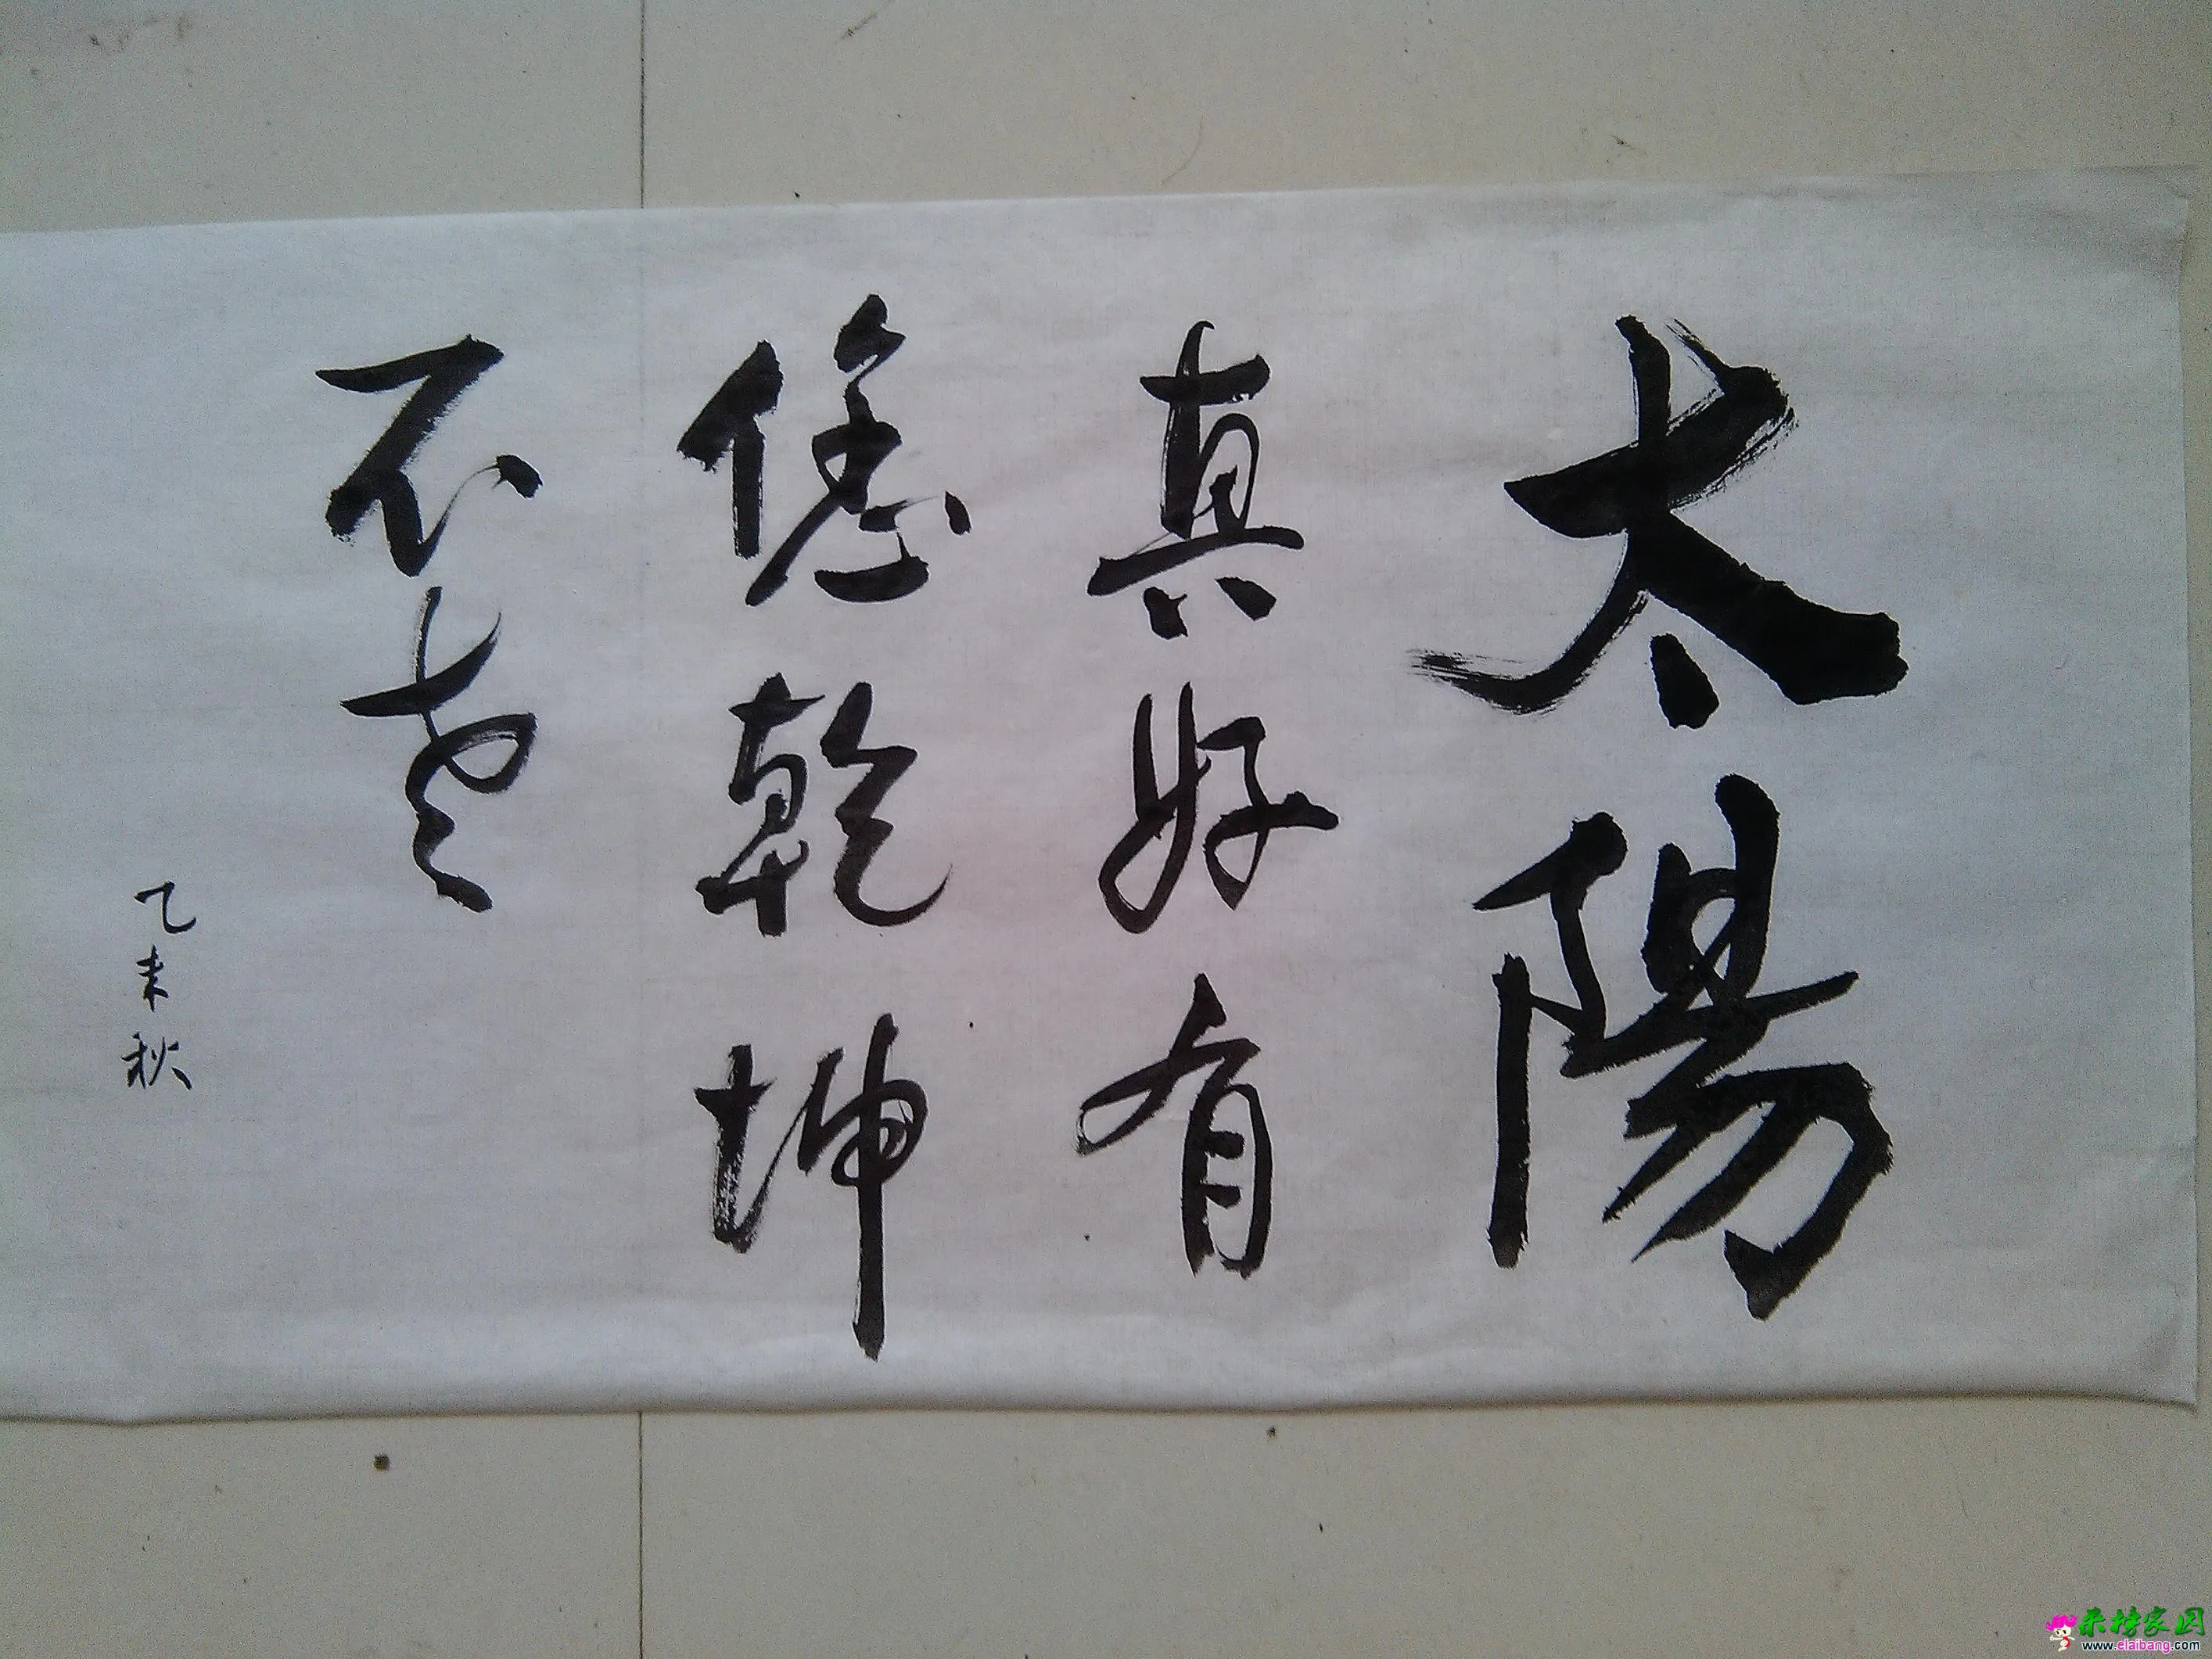 太陽
真好有
您乾坤
不老
乙未秋
来榜家园
www.elaibang.com